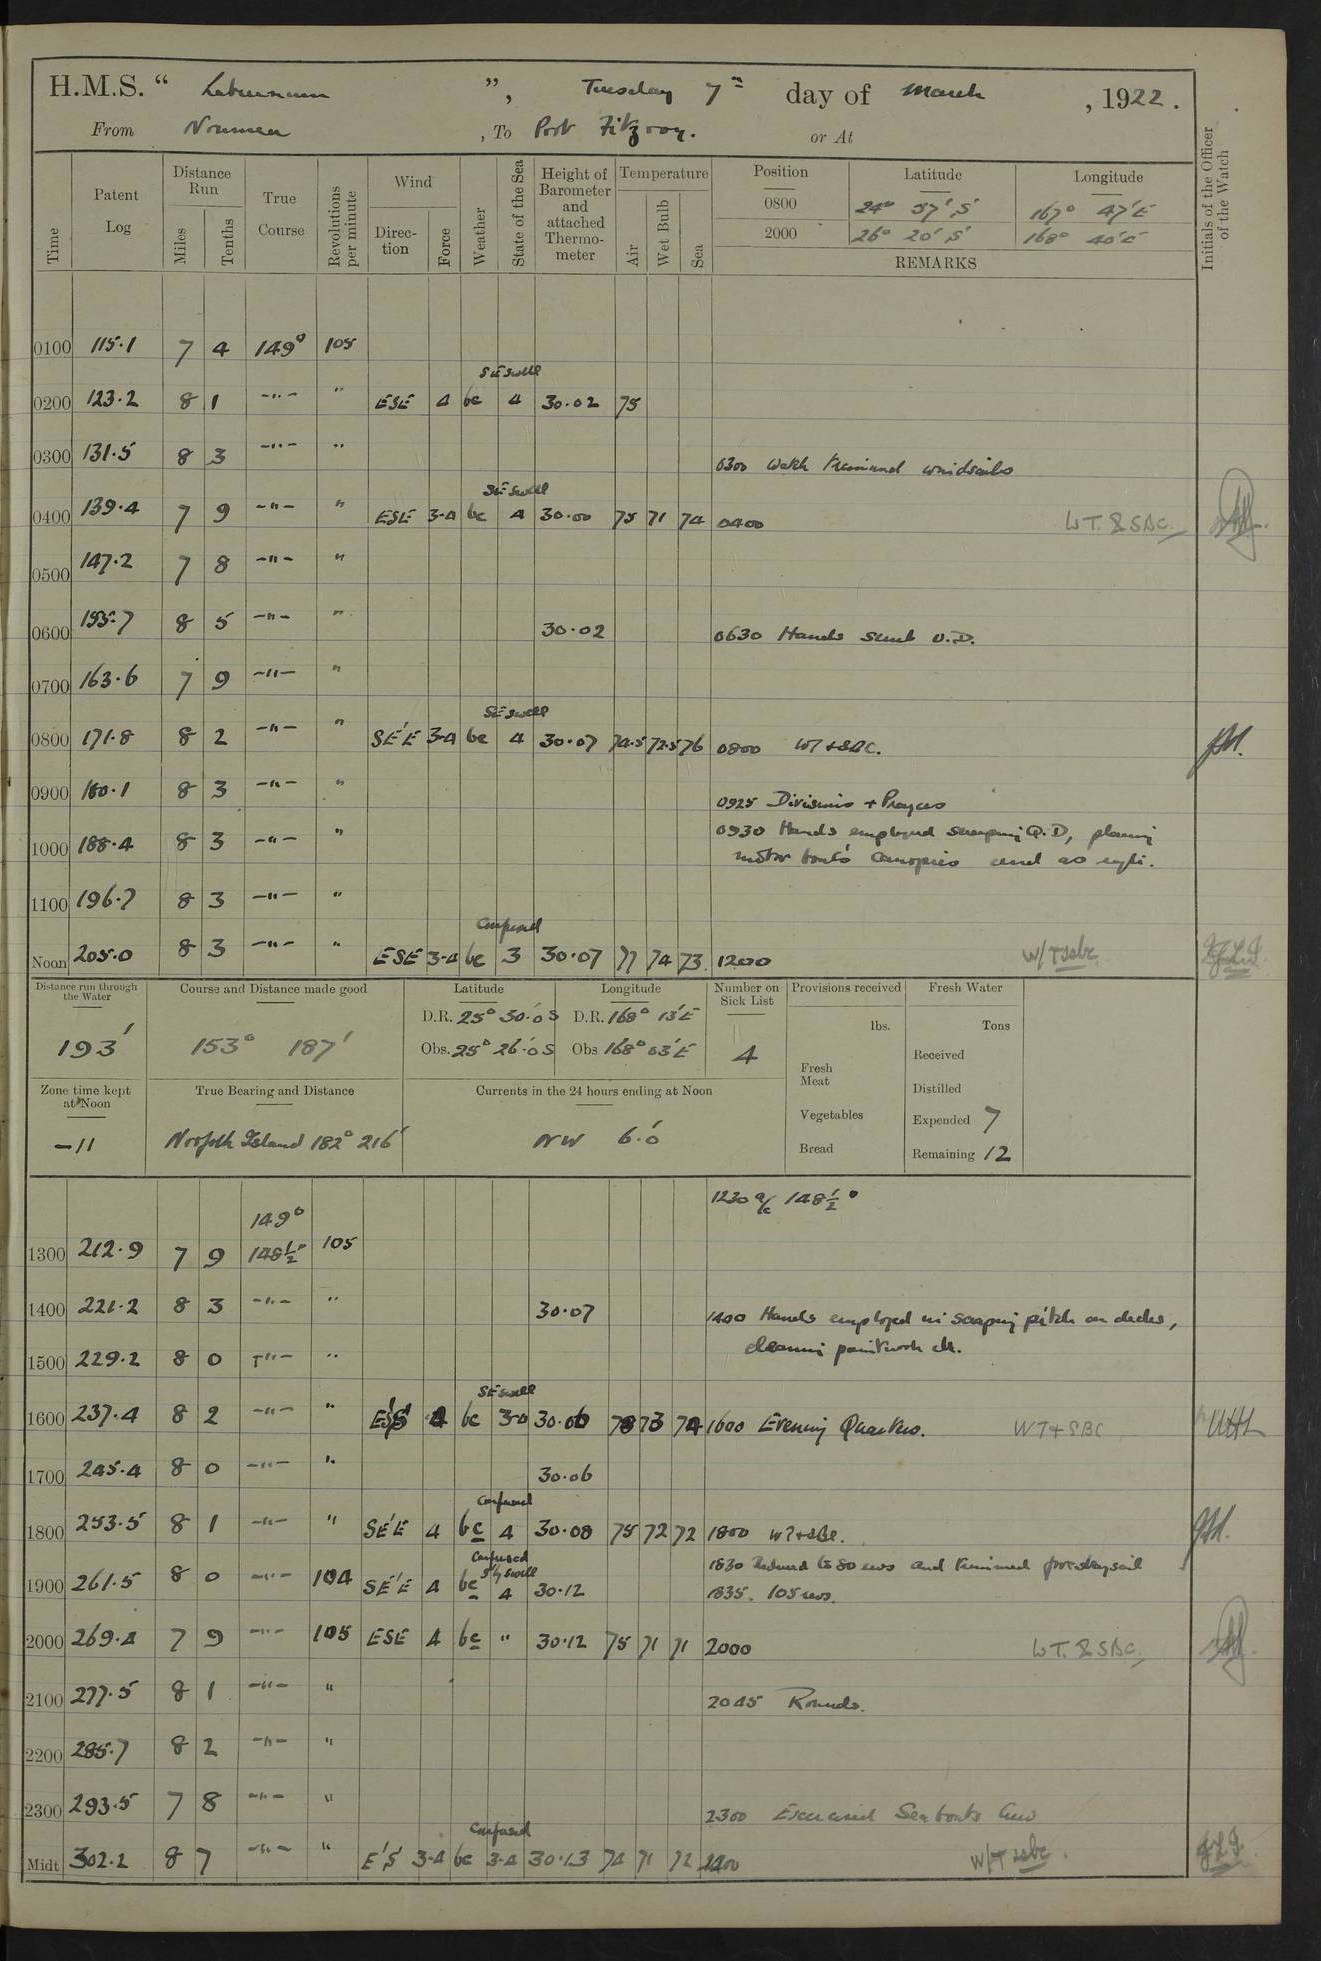 H.M.S. “ Laburnum ”, Tuesday 7th day of March , 1922.
From Noumea , To Port Fitzroy. or At
Time
Patent Log
Distance Run
Miles
Tenths
True Course
Revolutions per minute
Wind
Direction
Force
Weather
State of the Sea
Height of Barometer and attached Thermometer
Temperature
Air
Wet Bulb
Sea
Position Latitude Longitude
0800 24° 57' S 167° 47' E
2000 26° 20' S 168° 40' E
REMARKS
Initials of the Officer of the Watch
0100 115.1 7 4 149° 105
SE swell
0200 123.2 8 1 -"- " ESE 4 bc 4 30.02 75
0300 131.5 8 3 -"- "
0300 Watch trimmed windsails
SE swell
0400 139.4 7 9 -"- " ESE 3-4 bc 4 30.00 75 71 74 0400 WT. & SBC.
0500 147.2 7 8 -"- "
0600 155.7 8 5 -"- " 30.02 0630 Hands scrub U.D.
0700 163.6 7 9 -"- "
SE swell
0800 171.8 8 2 -"- " SE'E 3-4 bc 4 30.07 74.5 72.5 76 0800 WT + SBC.
0900 180.1 8 3 -"- "
0925 Divisions + Prayers
0930 Hands employed scraping Q.D,
1000 188.4 8 3 -"- "
motor boat's canopies and as reqte.
1100 196.7 8 3 -"- "
Confused
Noon 205.0 8 3 -"- " ESE 3-4 bc 3 30.07 77 74 73 1200 W/T sabc
Distance run through the Water
193'
Course and Distance made good
153° 187'
Latitude Longitude
D.R. 25° 30.'0 S D.R. 168° 13' E
Obs. 25° 26.'0 S Obs 168° 03' E
Number on Sick List
4
Provisions received
lbs.
Fresh Meat
Vegetables
Bread
Fresh Water
Tons
Received
Distilled
Expended 7
Remaining 12
Zone time kept at Noon
-11
True Bearing and Distance
Norfolk Island 182° 216'
Currents in the 24 hours ending at Noon
NW 6.'0
1230 a/c 148½°
149°
1300 212.9 7 9 148½° 105
1400 221.2 8 3 -"- " 30.07 1400 Hands employed in scraping pitch on decks,
cleaning paintwork etc.
1500 229.2 8 0 -"- "
SE swell
1600 237.4 8 2 -"- " 4 bc 3-4 30.06 78 73 74 1600 Evening Quarters. WT + SBC
1700 245.4 8 0 -"- " 30.06
Confused
1800 253.5 8 1 -"- " SE'E 4 bc 4 30.08 75 72 72 1800 WT + SBC.
Confused
S'ly swell
1830 Reduced to 80 revs and trimmed forestaysail
1900 261.5 8 0 -"- " 104 SE'E 4 bc 4 30.12 1835. 105 revs.
2000 269.4 7 9 -"- " 105 ESE 4 bc " 30.12 75 71 71 2000 WT. & SBC.
2100 277.5 8 1 -"- " 2045 Rounds.
2200 285.7 8 2 -"- "
2300 293.5 7 8 -"- " 2300 Exercised Seaboats Crew
Confused
Midt 302.2 8 7 -"- " E'S 3-4 bc 3-4 30.13 74 71 72 2400 W/T sabc.